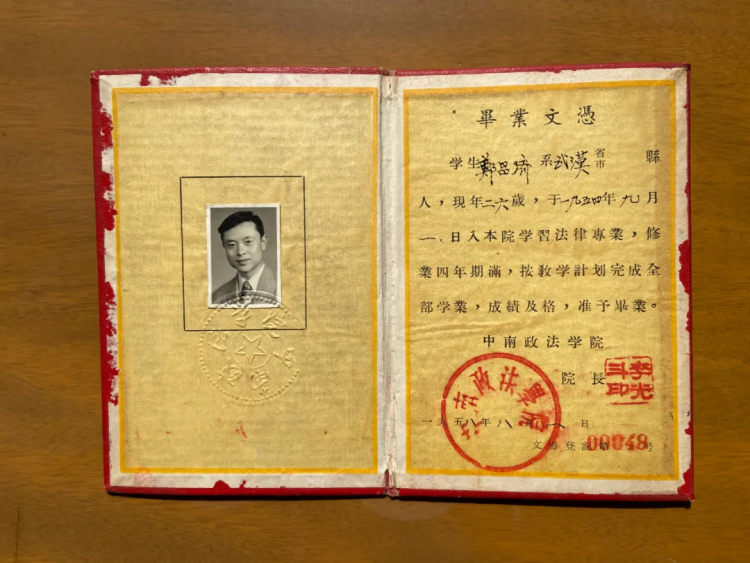 畢業文憑
学生鄭昌济系武漢省市縣
人，現年二六歲，于一九五四年九月
一日入本院学習法律專業，修
業四年期滿，按敎学計划完成全
部学業，成績及格，准予畢業。
中南政法学院
院長
李光斗印
中南政法學院
一九五八年八月一日
文憑登記第00048号